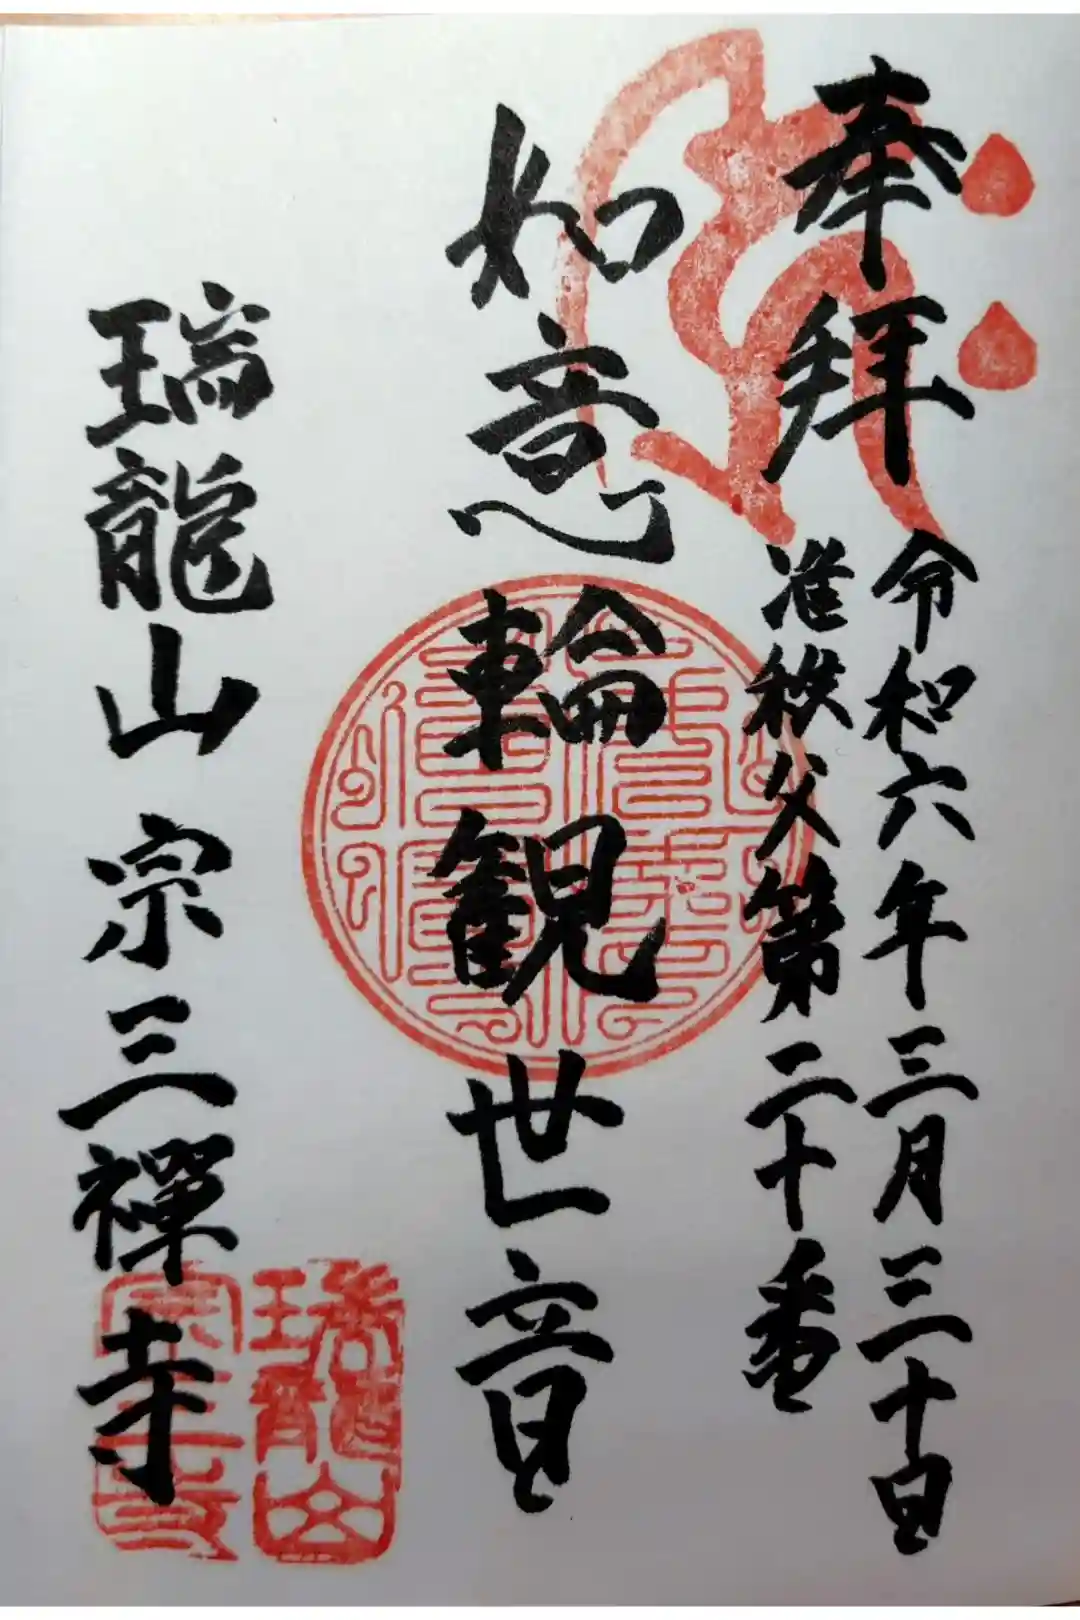 奉拝
令和六年三月三十日
准秩父第二十番
如意輪観世音
瑞龍山宗三禅寺
瑞龍山
宗三寺